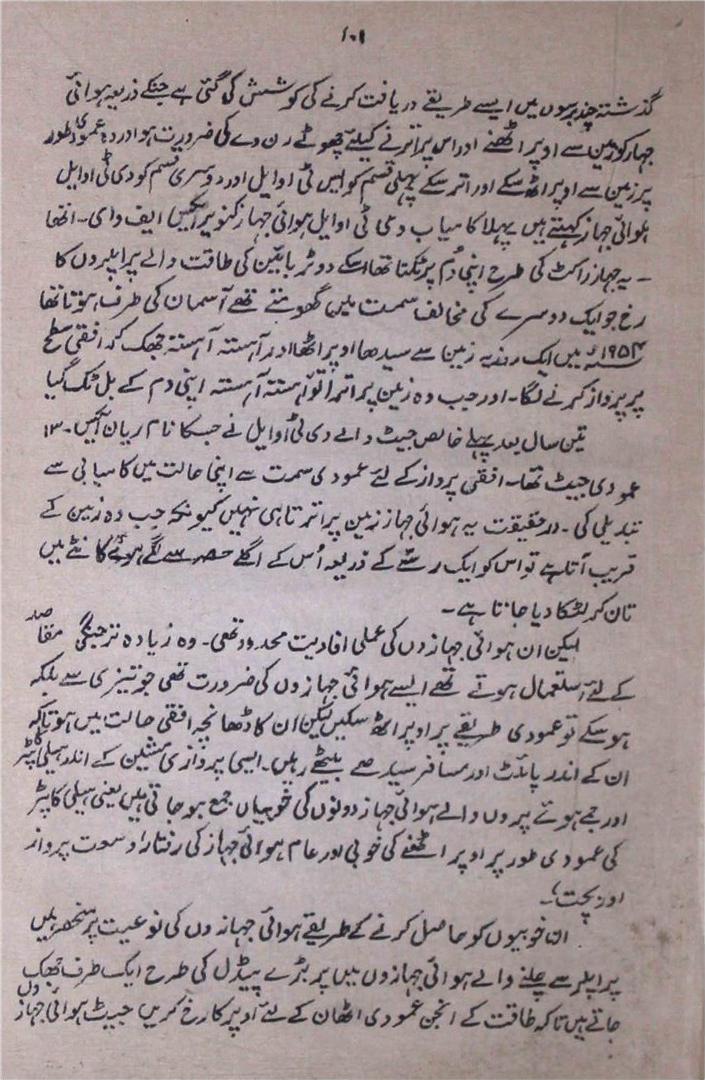 ۱۰۱
گذشتہ چند برسوں میں ایسے طریقے دریافت کرنے کی کوشش کی گئی ہے جنکے ذریعہ ہوائی
جہاز کو زمین سے اوپر اٹھنے اور اس پر اترنے کیلئے چھوٹے رن وے کی ضرورت ہو اور وہ عمودی طور
پر زمین سے اوپر اٹھ سکے اور اتر سکے پہلی قسم کو ایس ٹی اوایل اور دوسری قسم کو وی ٹی اوایل
ہوائی جہاز کہتے ہیں پہلا کامیاب وی ٹی اوایل ہوائی جہاز کنویر ایکس ایف وای۔ ا تھا
۔ یہ جہاز راکٹ کی طرح اپنی دُم پر ٹکتا تھا اسکے دو ٹربائین کی طاقت والے پراپلروں کا
رخ جو ایک دوسرے کی مخالف سمت میں گھومتے تھے آسمان کی طرف ہوتا تھا
۱۹۵۴ء میں ایک روز یہ زمین سے سیدھا اوپر اٹھا اور آہستہ آہستہ جھک کر افقی سطح
پر پرواز کرنے لگا۔ اور جب وہ زمین پر اترا تو آہستہ آہستہ اپنی دم کے بل ٹک گیا
تین سال بعد پہلے خالص جیٹ والے وی ٹی اوایل نے جسکا نام ریان ایکس۔ ۱۳
عمودی جیٹ تھا۔ افقی پرواز کے لئے عمودی سمت سے اپنی حالت میں کامیابی سے
تبدیلی کی۔ درحقیقت یہ ہوائی جہاز زمین پر اترتا ہی نہیں کیونکہ جب وہ زمین کے
قریب آتا ہے تو اس کو ایک رسے کے ذریعہ اُس کے اگلے حصہ سے لگے ہوئے کانٹے میں
تان کر لٹکا دیا جاتا ہے۔
لیکن ان ہوائی جہازوں کی عملی افادیت محدود تھی۔ وہ زیادہ تر جنگی مقاصد
کے لئے استعمال ہوتے تھے ایسے ہوائی جہازوں کی ضرورت تھی جو تیزی سے بلکہ
ہو سکے تو عمودی طریقے پر اوپر اٹھ سکیں لیکن ان کا ڈھانچہ افقی حالت میں ہو تاکہ
ان کے اندر پائلٹ اور مسافر سیدھے بیٹھے رہیں۔ ایسی پروازی مشین کے اندر ہیلی کاپٹر
اور جمے ہوئے پروں والے ہوائی جہاز دونوں کی خوبیاں جمع ہو جاتی ہیں یعنی ہیلی کاپٹر
کی عمودی طور پر اوپر اٹھنے کی خوبی اور عام ہوائی جہاز کی رفتار، وسعت پرواز
اور بچت،۔
ان خوبیوں کو حاصل کرنے کے طریقے ہوائی جہازوں کی نوعیت پر منحصر ہیں
پراپلر سے چلنے والے ہوائی جہازوں میں پر بڑے پیڈل کی طرح ایک طرف جھک
جاتے ہیں تاکہ طاقت کے انجن عمودی اٹھان کے لئے اوپر کا رخ کریں جیٹ ہوائی جہازوں